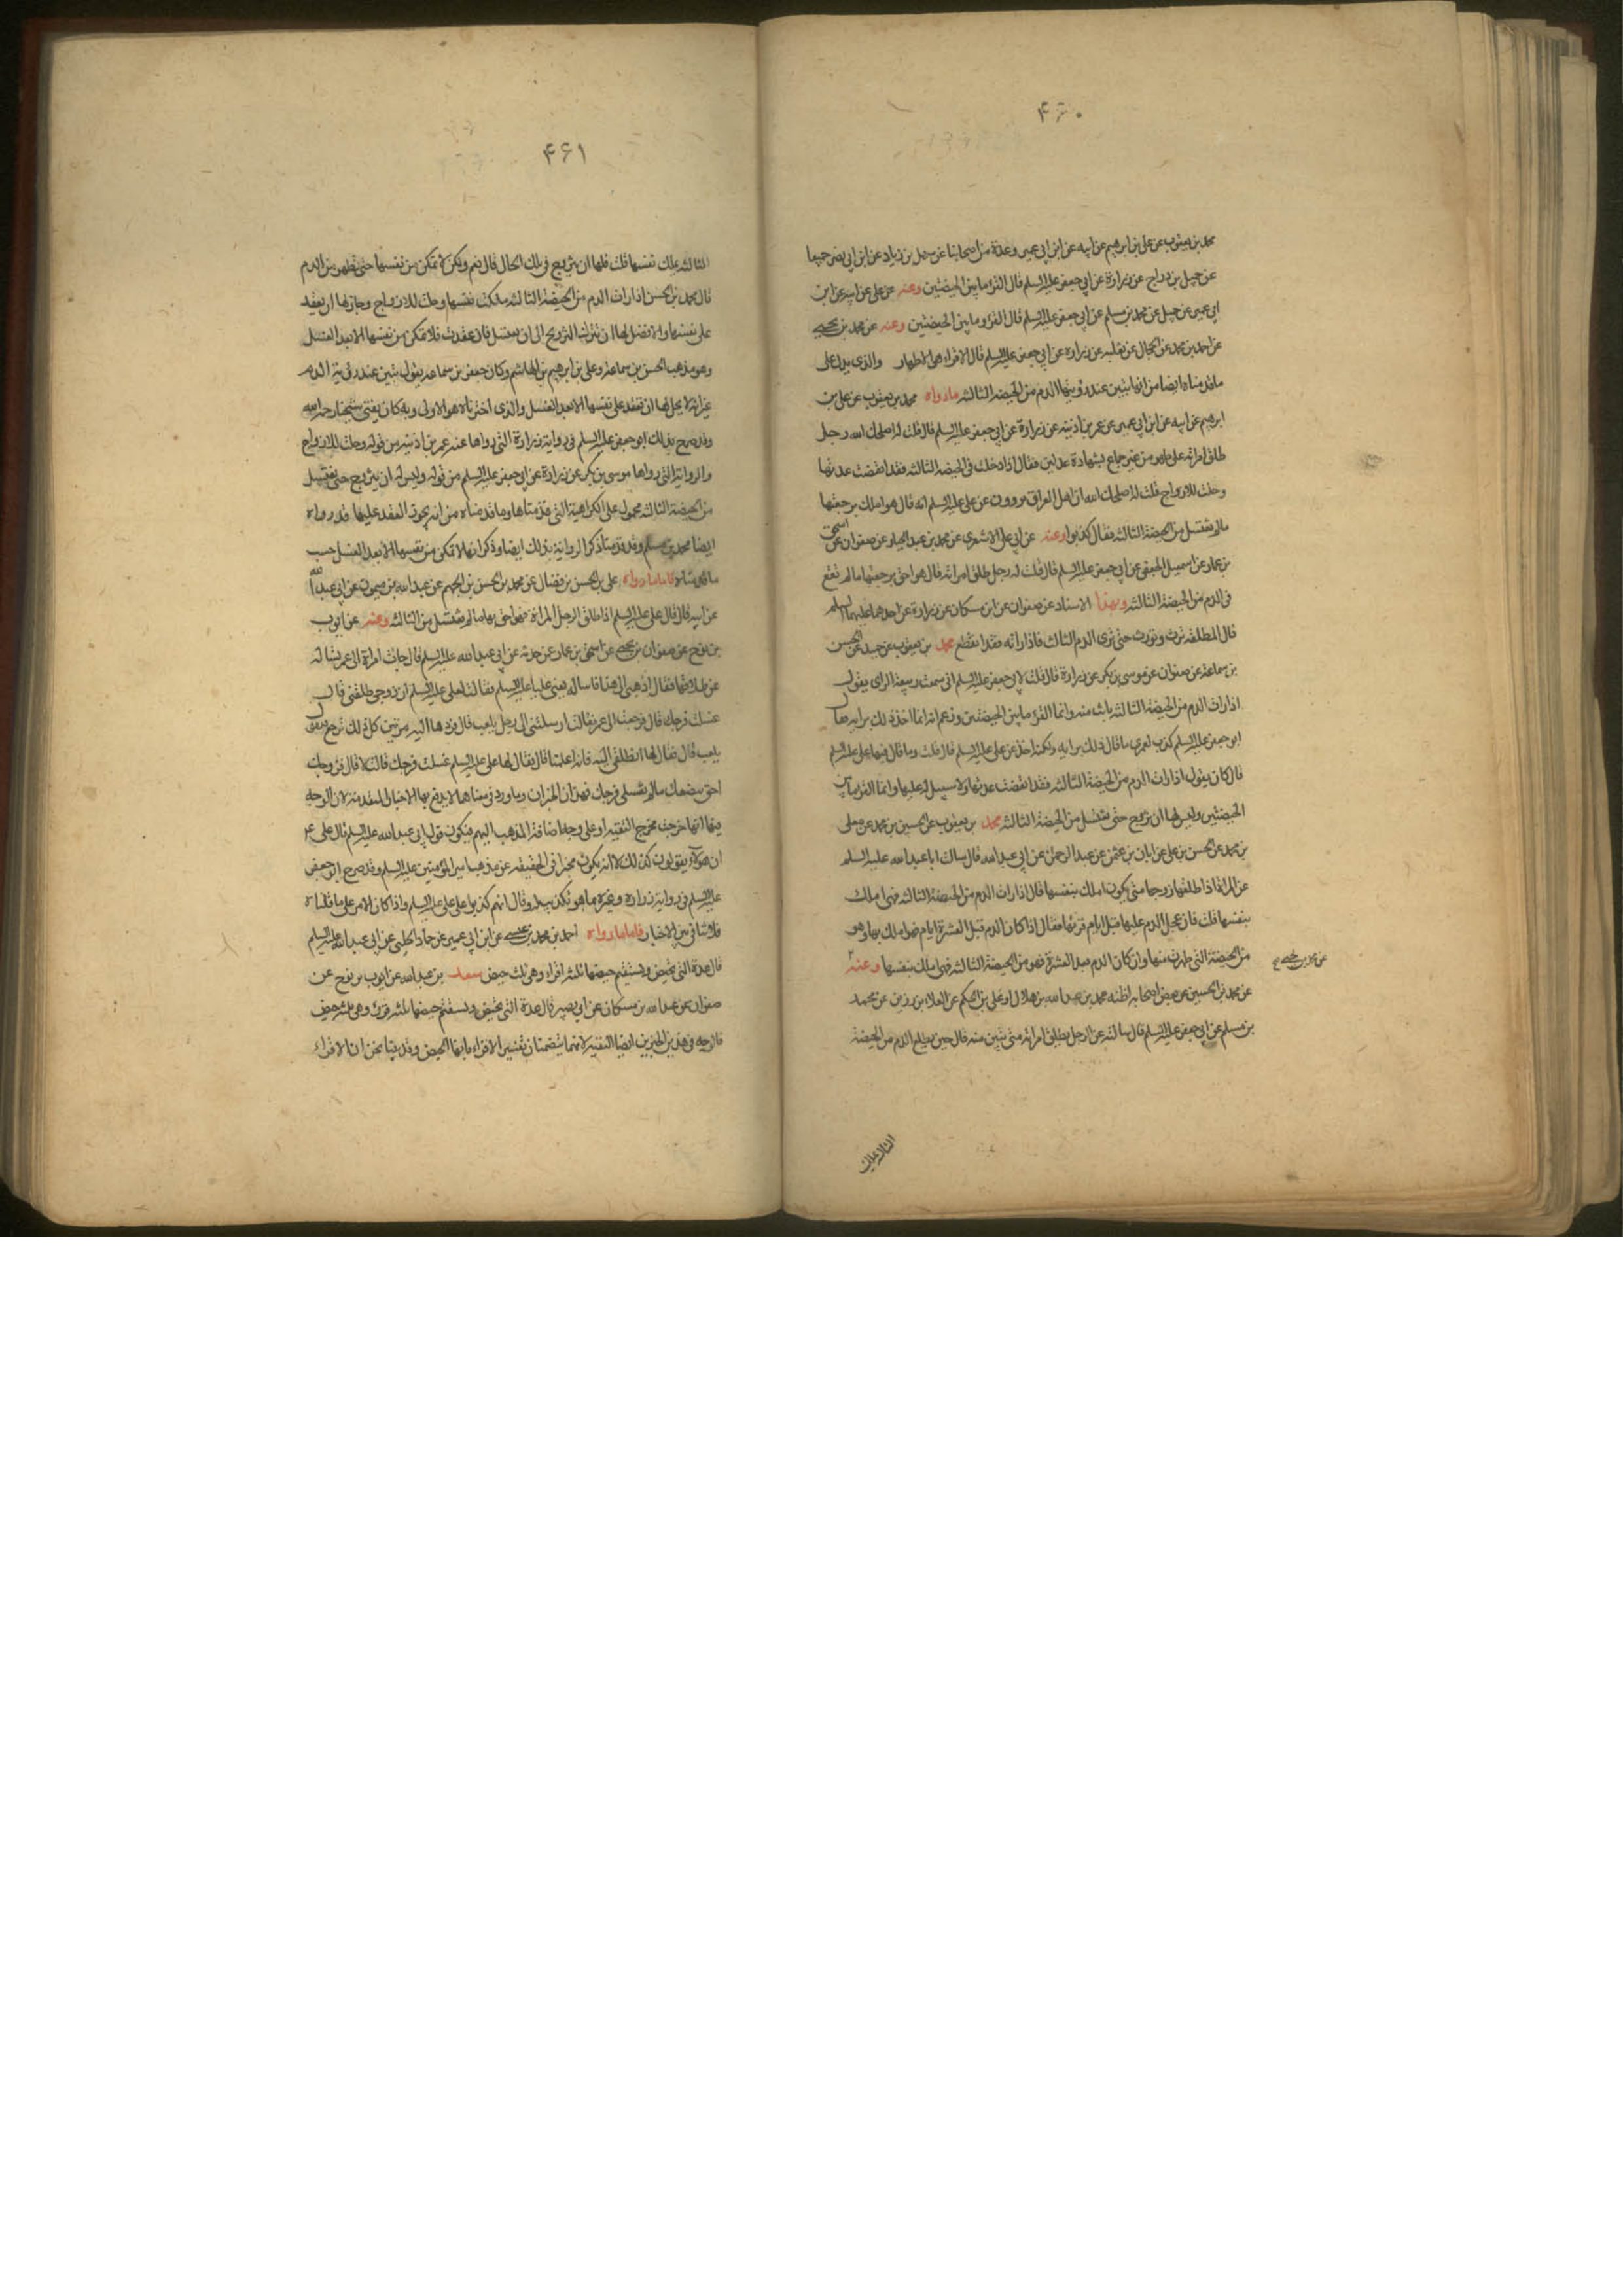 ۴۶۰
محمد بن يعقوب عن علي بن ابرهيم عن ابيه عن ابن ابي عمير وعدة من اصحابنا عن سهل بن زياد عن ابن ابي نصر جميعا
عن جميل بن دراج عن زرارة عن ابي جعفر عليه السلم قال القرء ما بين الحيضتين وعنه عن علي عن ابيه عن ابن
ابي عمير عن جميل عن محمد بن مسلم عن ابي جعفر عليه السلم قال القرء ما بين الحيضتين وعنه عن محمد بن يحيى
عن احمد بن محمد عن الحجال عن ثعلبه عن زراره عن ابي جعفر عليه السلم قال الاقراء هى الاطهار والذى يدل على
ما قدمناه ايضا من انها تبين عند رؤيتها الدم من الحيضة الثالثه مارواه محمد بن يعقوب عن علي بن
ابرهيم عن ابيه عن ابن ابي عمير عن عمر بن اذينه عن زرارة عن ابي جعفر عليه السلم قال قلت له اصلحك الله رجل
طلق امراته على طهر من غير جماع بشهادة عدلين فقال اذا دخلت فى الحيضه الثالثه فقد انقضت عدتها
وحلت للازواج قلت له اصلحك الله ان اهل العراق يروون عن علي عليه السلم انه قال هو املك برجعتها
مالم تغتسل من الحيضة الثالثه فقال كذبوا وعنه عن ابي علي الاشعرى عن محمد بن عبد الجبار عن صفوان عن اسحق
بن عمار عن اسمعيل الجعفى عن ابي جعفر عليه السلم قال قلت له رجل طلق امراته قال هو احق برجعتها مالم تقع
فى الدم من الحيضة الثالثه وبهذا الاسناد عن صفوان عن ابن مسكان عن زرارة عن احدهما عليهما السلم
قال المطلقه ترث وتورث حتى ترى الدم الثالث فاذا راته فقد انقطع محمد بن يعقوب عن حميد عن الحسن
بن سماعة عن صفوان عن موسى بن بكر عن زرارة قال قلت لابي جعفر عليه السلم انى سمعت ربيعة الراى يقول
اذا رات الدم من الحيضة الثالثه بانت منه وانما القرء ما بين الحيضتين وزعم انه انما اخذ ذلك برايه فقال
ابو جعفر عليه السلم كذب لعمرى ما قال ذلك برايه ولكنه اخذ عن علي عليه السلم قال قلت وما قال فيها علي عليه السلم
قال كان يقول اذا رات الدم من الحيضة الثالثه فقد انقضت عدتها ولا سبيل له عليها وانما القرء ما بين
الحيضتين وليس لها ان تزوج حتى تغتسل من الحيضة الثالثه محمد بن يعقوب عن الحسين بن محمد عن معلى
بن محمد عن الحسن بن علي عن ابان بن عثمن عن عبد الرحمن عن ابي عبد الله قال سالت ابا عبد الله عليه السلم
عن المراة اذا طلقها زوجها متى يكون املك بنفسها قال اذا رات الدم من الحيضة الثالثه فهى املك
بنفسها قلت فان عجل الدم عليها قبل ايام قرئها فقال اذا كان الدم قبل العشرة ايام فهو املك بها وهو
من الحيضة التى طهرت منها وان كان الدم بعد العشرة فهو من الحيضة الثالثه فهى املك بنفسها وعنه
عن محمد بن يحيى صح
عن محمد بن الحسين عن بعض اصحابه اظنه محمد بن عبد الله بن هلال او علي بن الحكم عن العلاء بن رزين عن محمد
بن مسلم عن ابي جعفر عليه السلم قال سالته عن الرجل يطلق امراته متى تبين منه قال حين يطلع الدم من الحيضة
الثالثه تملك
۴۶۱
الثالثه تملك نفسها قلت فلها ان تتزوج فى تلك الحال قال نعم ولكن لا تمكن من نفسها حتى تطهر من الدم
قال محمد بن الحسن اذا رات الدم من الحيضة الثالثه ملكت نفسها وحلت للازواج وجاز لها ان تعقد
على نفسها والافضل لها ان تترك التزويج الى ان تغتسل فان عقدت فلا تمكن من نفسها الا بعد الغسل
وهو مذهب الحسن بن سماعه وعلي بن ابرهيم بن الهاشم وكان جعفر بن سماعه يقول تبين عند رؤية الدم
غير انه لا يحل لها ان تعقد على نفسها الا بعد الغسل والذى اخترناه هو الاولى وبه كان يفتى شيخنا رحمه الله
وقد صرح بذلك ابو جعفر عليه السلم فى رواية زرارة التى رواها عنه عمر بن اذينه من قوله وحلت للازواج
والرواية التى رواها موسى بن بكر عن زرارة عن ابي جعفر عليه السلم من قوله وليس له ان يتزوج حتى تغتسل
من الحيضة الثالثه محمول على الكراهية التى قدمناها وما قدمناه من انه يجوز العقد عليها قد رواه
ايضا محمد بن مسلم وقد قدمنا ذكر الرواية بذلك ايضا وذكر انها لا تمكن من نفسها الا بعد الغسل حسب
ما قدمناه فاما ما رواه علي بن الحسن بن فضال عن محمد بن الحسن بن الجهم عن عبد الله بن ميمون عن ابي عبد الله
عن ابيه قال قال علي عليه السلم اذا طلق الرجل المراة فهو احق بها مالم تغتسل من الثالثه وعنه عن ايوب
بن نوح عن صفوان بن يحيى عن اسحق بن عمار عن حدثه عن ابي عبد الله عليه السلم قال جائت امراة الى عمر تساله
عن طلاقها فقال اذهبى الى هذا فاساله يعنى عليا عليه السلم فقالت لعلي عليه السلم ان زوجى طلقنى قال
غسلت فرجك قال فرجعت الى عمر فقالت ارسلتنى الى رجل يلعب قال فردها اليه مرتين كل ذلك ترجع فتقول
يلعب قال فقال لها انطلقى اليه فانه اعلمنا قال فقال لها علي عليه السلم غسلت فرجك قالت لا قال فزوجك
احق ببضعك مالم تغسلى فرجك فهذان الخبران وما ورد فى معناهما لا يدفع بها الاخبار المتقدمة لان الوجه
فيها انها خرجت مخرج التقيه او على وجه اضافة المذهب اليهم فيكون قول ابي عبد الله عليه السلم قال علي ع
ان هؤلاء يقولون كذلك لا انه يكون مخبرا فى الحقيقه عن مذهب امير المؤمنين عليه السلم وقد صرح ابو جعفر
عليه السلم فى رواية زرارة وغيره ما هو تكذيب له وقال انهم كذبوا على علي عليه السلم واذا كان الامر على ما قلناه
فلا تنافى بين الاخبار فاما ما رواه احمد بن محمد بن عيسى عن ابن ابي عمير عن حماد الحلبى عن ابي عبد الله عليه السلم
قال عدة التى تحيض ويستقيم حيضها ثلثه اقراء وهى ثلث حيض سعد بن عبد الله عن ايوب بن نوح عن
صفوان عن عبد الله بن مسكان عن ابي بصير قال عدة التى تحيض ويستقيم حيضها ثلثه قروء وهى ثلث حيض
فالوجه فى هذين الخبرين ايضا التقية لانهما يتضمنان تفسير الاقراء بانها الحيض وقد بينا نحن ان الاقراء